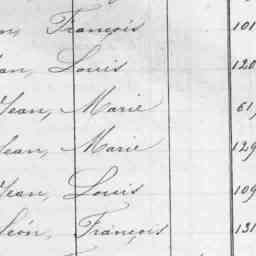 François 101
Louis 120
Jean, Marie 61
Jean, Marie 129
Jean, Louis 109
François 131